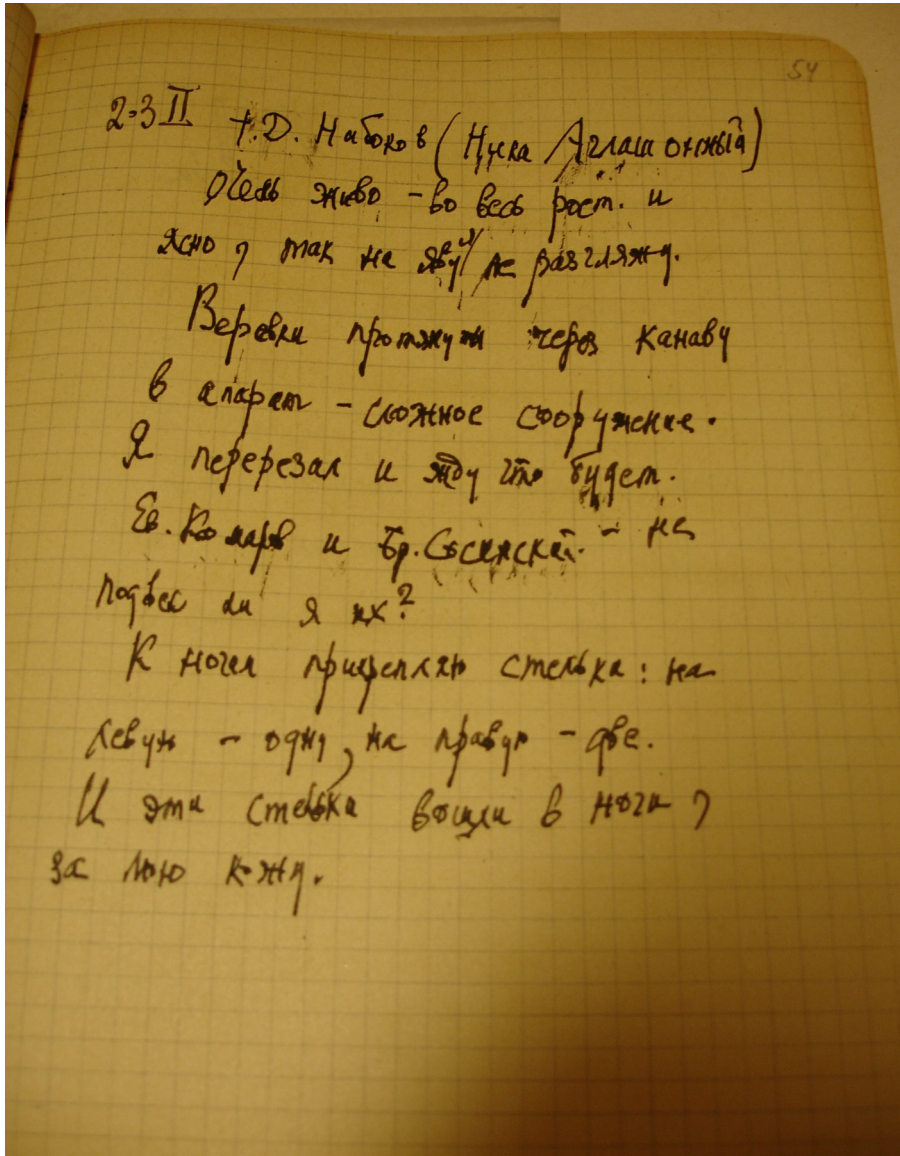 54
2-3 II †.D. Набоков (Цука Аглашонный)
Очень живо - во весь рост. и
ясно, так на яву и не разгляжу.
Веревки протянуты через канаву
в апарат - сложное сооружение.
Я перерезал и жду что будет.
Ев. Комаров и Бр. Сосинский. - не
подвел ли я их?
К ногам прицепляю стельки: на
левую - одну, на правую - две.
И эти стельки вошли в ноги,
за мою кожу.